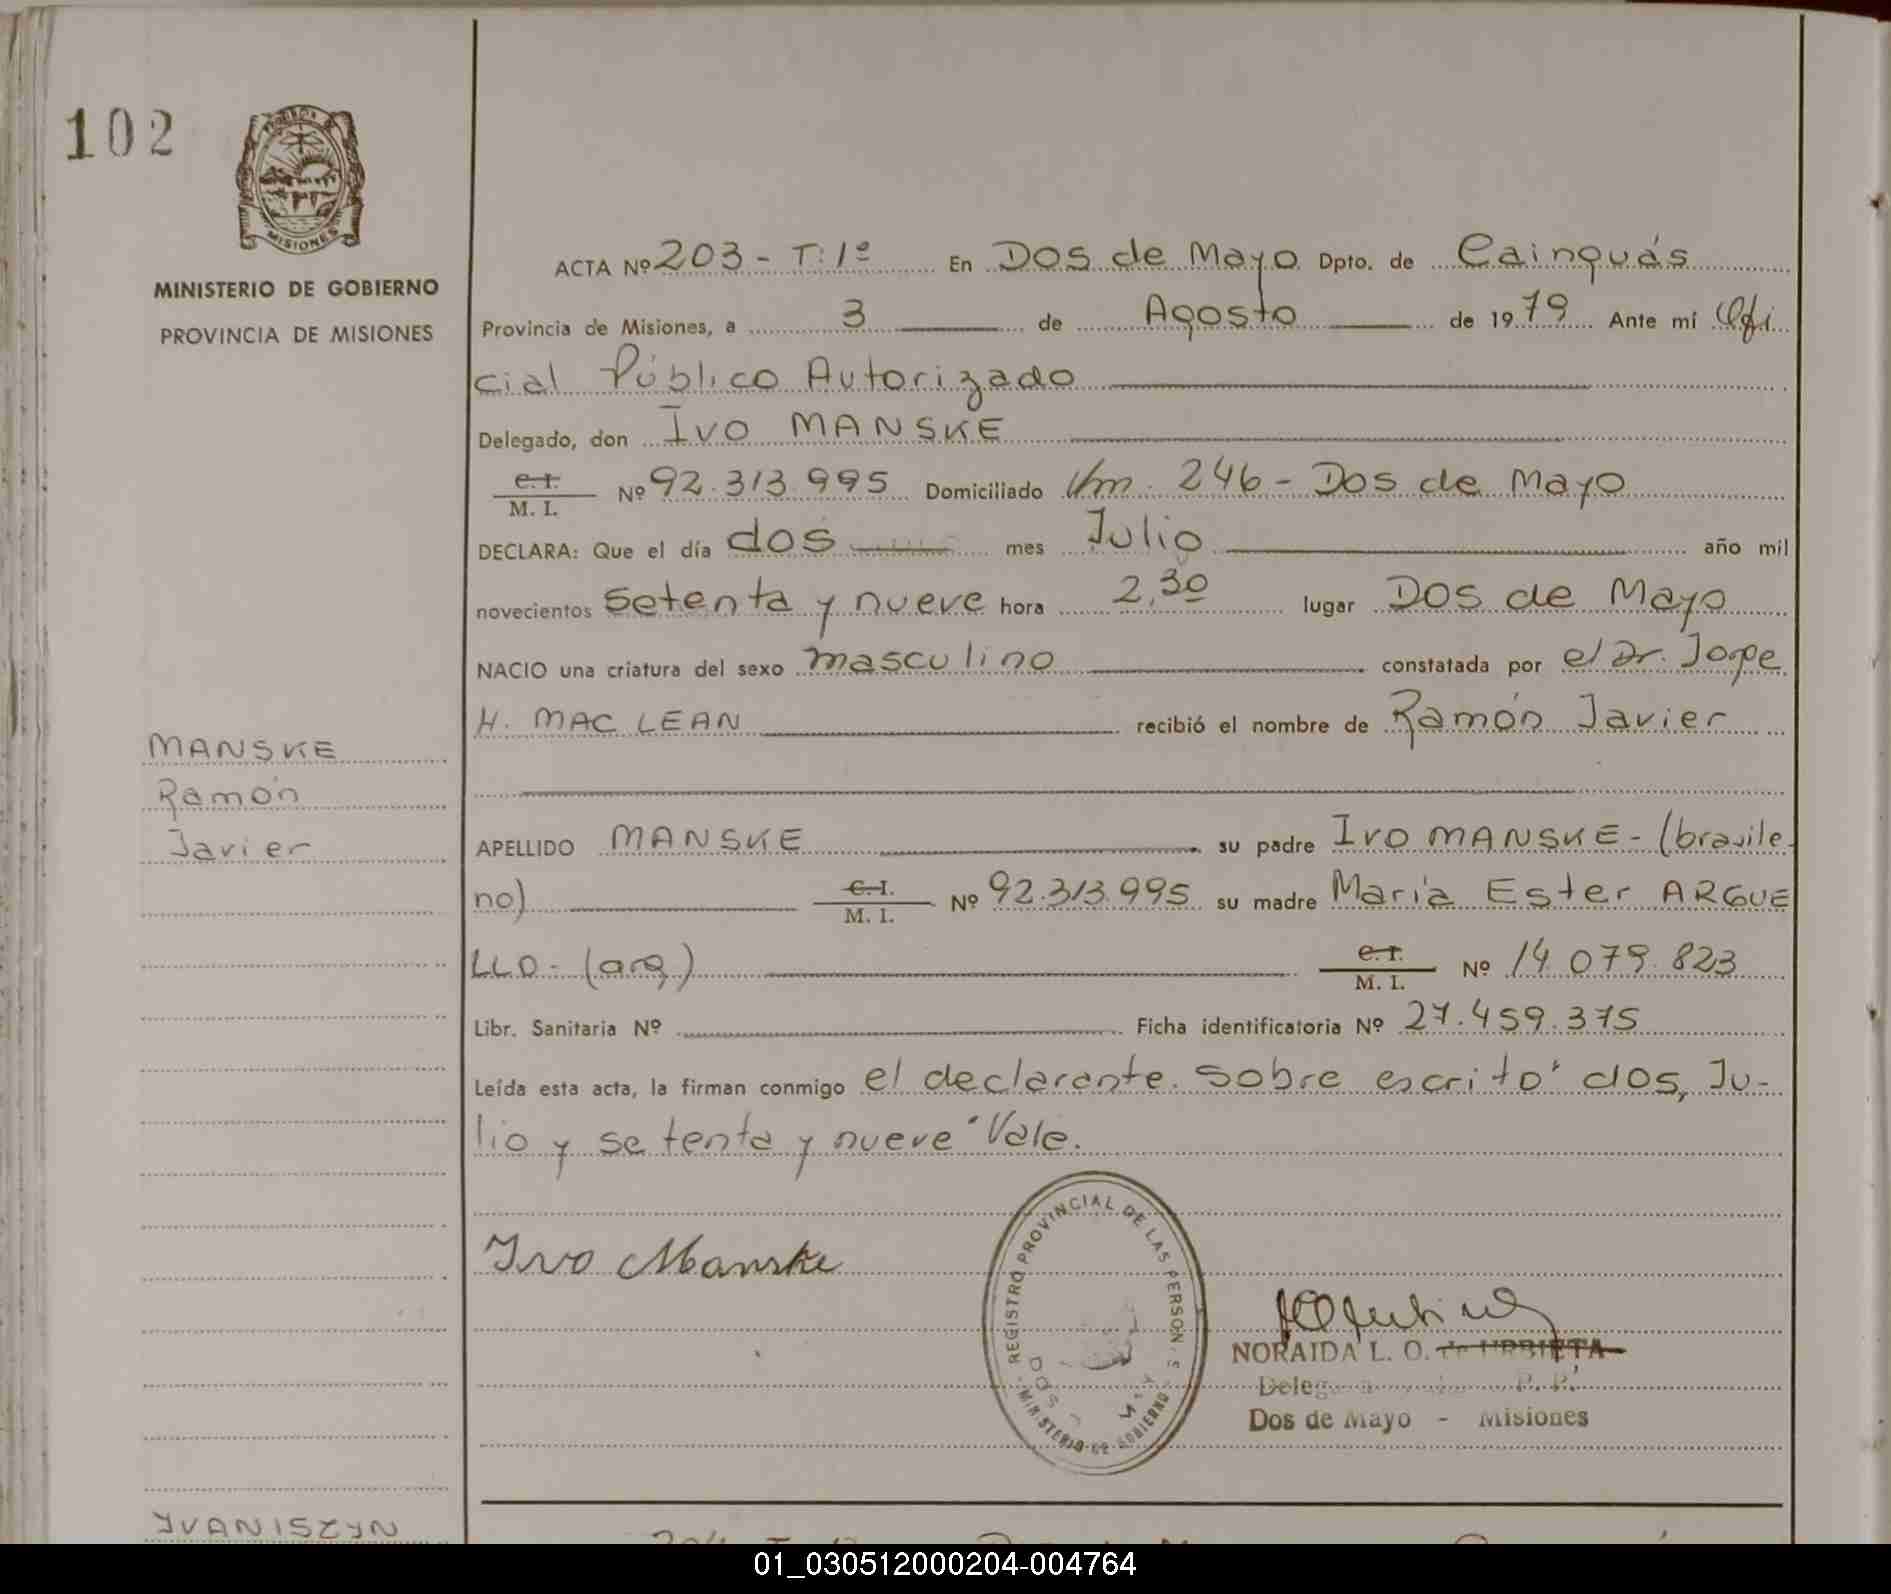 102
MISIONES
MINISTERIO DE GOBIERNO
PROVINCIA DE MISIONES
ACTA Nº 203 - T: 1º En Dos de Mayo Dpto. de Cainguás
Provincia de Misiones, a 3 de Agosto de 1979 Ante mí Ofi
cial Público Autorizado
Delegado, don Ivo MANSKE
C. I.
M. I. Nº 92.313.995 Domiciliado Km. 246 - Dos de Mayo
DECLARA: Que el día dos mes Julio año mil
novecientos setenta y nueve hora 2,30 lugar Dos de Mayo
NACIO una criatura del sexo masculino constatada por el Dr. Jorge
H. MAC LEAN recibió el nombre de Ramón Javier
MANSKE
Ramón
Javier
APELLIDO MANSKE su padre Ivo MANSKE - (brasile-
no) C. I.
M. I. Nº 92.313.995 su madre María Ester ARGUE
LLO - (arg) C. I.
M. I. Nº 14.079.823
Libr. Sanitaria Nº Ficha identificatoria Nº 27.459.375
Leída esta acta, la firman conmigo el declarante. Sobre escrito" dos, Ju-
lio y setenta y nueve" Vale.
Ivo Manske
REGISTRO PROVINCIAL DE LAS PERSONAS
MINISTERIO DE GOBIERNO
NORAIDA L. O. de URBIETA
Dos de Mayo - Misiones
YVANISZYN
01_030512000204-004764